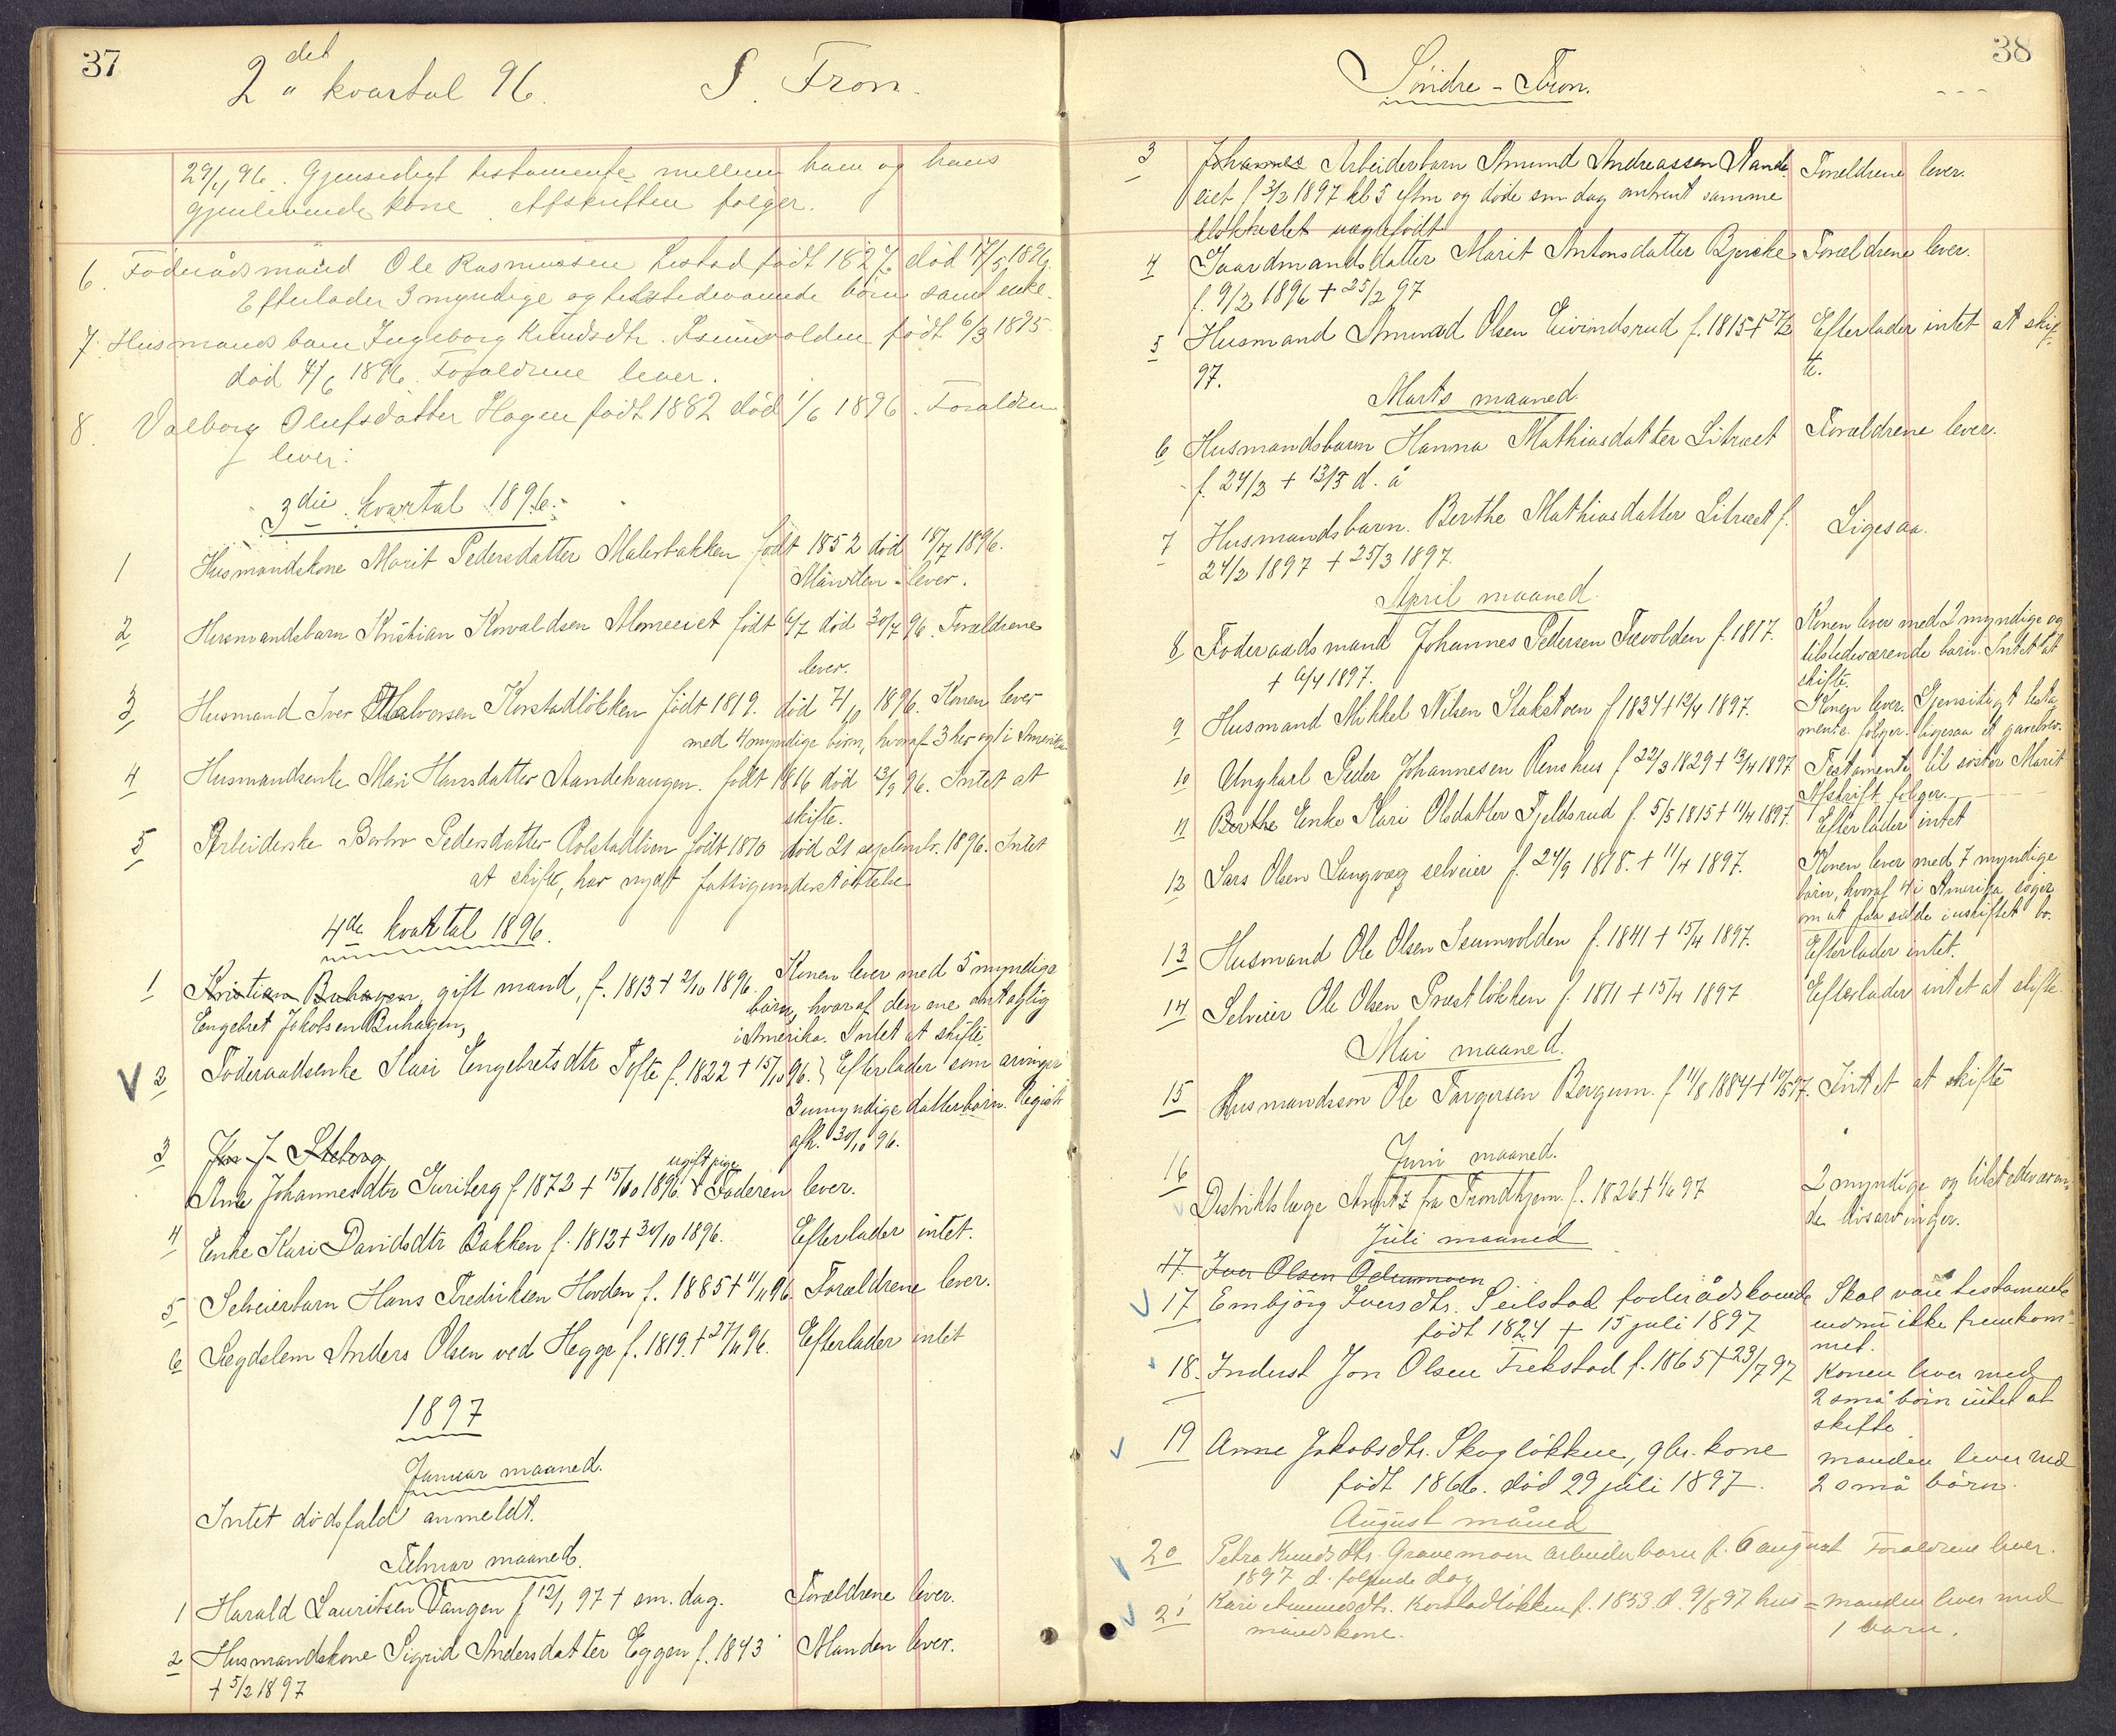 37
2 det kvartal 96. S. Fron.
29/4 96. Gjensidigt testamente mellem ham og hans
gjenlevende kone. Afskriften følger.
6. Föderådsmand Ole Rasmussen Listad födt 1827 död 17/5 1896.
Efterlader 3 myndige og tilstedeværende börn samt enke.
7. Husmands barn Ingeborg Knudsdtr. Isumvolden födt 6/3 1895
död 4/6 1896. Forældrene lever.
8. Valborg Olufsdatter Hagen födt 1882 död 1/6 1896. Forældren
lever.
3die kvartal 1896.
1 Husmandskone Marit Pedersdatter Malerbakken født 1852 død 18/7 1896.
Manden lever.
2 Husmandsbarn Kristian Korvaldsen Moneeiet født 6/7 død 30/7 96. Forældrene
lever.
3 Husmand Iver Halvorsen Korstadløkken født 1819. død 7/ 1896. Konen lever
med 4 myndige børn, hvoraf 3 her og 1 i Amerika
4 Husmandsenke Mari Hansdatter Aandehaugen. født 1816 død 13/9 96. Intet at
skifte.
5 Arbeiderske Barbro Pedersdatter Rolstadlien født 1870 død 21 septembr. 1896. Intet
at skifte, har nydt fattigunderstøttelse
4de kvartal 1896.
1 Kristian Buhagen, gift mand, f. 1813 + 2/10 1896. Konen lever med 5 myndige
Engebret Jakobsen Buhagen, børn, hvoraf den ene antagelig
i Amerika. Intet at skifte.
2 Føderaadsenke Kari Engebretsdtr Tofte f. 1822 + 15/10 96. Efterlader som arvinger
3 umyndige datterbørn. Registr
afh. 30/10 96.
3 J. Steborg
Ane Johannesdtr Guriberg f. 1872 + 15/10 1896. ugift pige Faderen lever.
4 Enke Kari Davidsdtr Bakken f. 1812 + 30/10 1896. Efterlader intet.
5 Selveierbarn Hans Fredriksen Hovden f. 1885 + 11/11 96. Forældrene lever.
6 Lægdslem Anders Olsen ved Hegge f. 1819. + 27/11 96. Efterlader intet
1897
Januar maaned.
Intet dødsfald anmeldt.
Februar maaned.
1 Harald Lauritsen Vangen f 12/1 97 + sm. dag. Forældrene lever.
2 Husmandskone Sigrid Andersdatter Eggen f. 1843 Manden lever.
+ 5/2 1897
38
Søndre-Fron.
3 Johannes Arbeiderbarn Amund Andreassen Aande Forældrene lever.
eiet f 3/2 1897 kl 5 eftm og døde sm dag omtrent samme
klokkeslet uægtefødt
4 Gaardmandsdatter Marit Antonsdatter Bjerke Forældrene lever.
f. 9/3 1896 + 25/2 97
5 Husmand Amund Olsen Eivindsrud f. 1815 + 27/2 Efterlader intet at skif-
97. te.
Marts maaned.
6 Husmandsbarn Hanna Mathiasdatter Litræet Forældrene lever.
f. 24/2 + 13/3 d. å
7 Husmandsbarn. Berthe Mathiasdatter Litræet f. Ligesaa.
24/2 1897 + 25/3 1897.
April maaned.
8 Foderaadsmand Johannes Pedersen Trævolden f. 1817. Konen lever med 2 myndige og
+ 6/4 1897. tilstedeværende børn. Intet at
skifte.
9 Husmand Mikkel Nilsen Stakstoen f 1834 + 12/4 1897. Konen lever. Gjensidigt testa
mente følger. ligesaa et gavebrev.
10 Ungkarl Peder Johannesen Renshus f 22/3 1829 + 13/4 1897. Testamente til søster Marit
Afskrift følger.
11 Berthe Enke Kari Olsdatter Fjeldsrud f. 5/5 1815 + 11/4 1897. Efterlader intet
12 Lars Olsen Langvæg selveier f. 24/9 1818. + 11/4 1897. Konen lever med 7 myndige
børn, hvoraf 4 i Amerika, søger
om at faa sidde i uskiftet bo.
13 Husmand Ole Olsen Isumvolden f. 1841 + 15/4 1897. Efterlader intet.
14 Selveier Ole Olsen Præstløkken f. 1811 + 15/4 1897 Efterlader intet at skifte.
Mai maaned.
15 Husmandssøn Ole Torgersen Bergum. f 11/8 1884 + 10/5 97. Intet at skifte
Juni maaned.
16 Distriktslæge Arntz fra Trondhjem. f. 1826 + 1/6 97 2 myndige og tilstedeværen-
de livsarvinger.
Juli maaned
17. Iver Olsen Odenmoen
17 Embjörg Iversdtr. Seilstad foderådskone Skal være testamente
födt 1824 + 15 juli 1897 endnu ikke fremkom-
met.
18. Inderst Jon Olsen Frekstad f. 1865 + 23/7 97 Konen lever med
2 små börn intet at
skifte
19 Anne Jakobsdtr. Skoglökken, gbr. kone manden lever med
födt 1866. död 29 juli 1897. 2 små börn.
August måned
20 Petra Knudsdtr. Gravemoen arbeiderbarn f. 6 august Forældrene lever.
1897 d. følgende dag
21 Kari Amundsdtr. Korstadlökken f. 1853. d. 9/8 97 hus= manden lever med
mandskone. 1 barn.